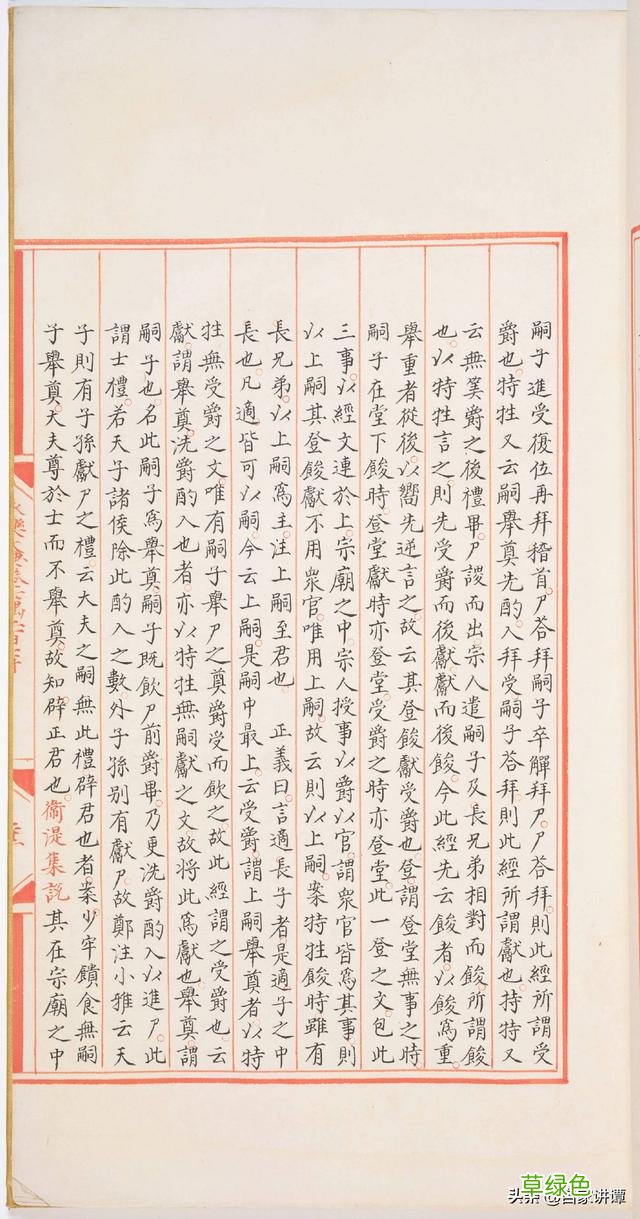 嗣子進受復位再拜稽首尸荅拜嗣子卒觶拜尸尸荅拜則此經所謂受
爵也特牲又云嗣舉奠先酌入拜受嗣子荅拜則此經所謂獻也持特又
云無筭爵之後禮畢尸謖而出宗人遣嗣子及長兄弟相對而餕所謂餕
也以特牲言之則先受爵而後獻獻而後餕今此經先云餕者以餕爲重
舉重者從後以嚮先逆言之故云其登餕獻受爵也登謂登堂無事之時
嗣子在堂下餕時登堂獻時亦登堂受爵之時亦登堂此一登之文包此
三事以經文連於上宗廟之中宗人授事以爵以官謂衆官皆爲其事則
以上嗣其登餕獻不用衆官唯用上嗣故云則以上嗣案特牲餕時雖有
長兄弟以上嗣爲主注上嗣至君也 正義曰言適長子者是適子之中
長也凡適皆可以嗣今云上嗣是嗣中最上云受爵謂上嗣舉奠者以特
牲無受爵之文唯有嗣子舉尸之奠爵受而飲之故此經謂之受爵也云
獻謂舉奠洗爵酌入也者亦以特牲無嗣獻之文故將此爲獻也舉奠謂
嗣子也名此嗣子爲舉奠嗣子既飲尸前爵畢乃更洗爵酌入以進尸此
謂士禮若天子諸侯除此酌入之數外子孫別有獻尸故鄭注小雅云天
子則有子孫獻尸之禮云大夫之嗣無此禮辟君也者案少牢饋食無嗣
子舉奠大夫尊於士而不舉奠故知辟正君也衞湜集說其在宗廟之中
草绿色
头条 @百家讲谭